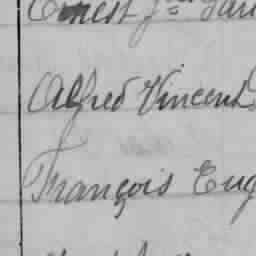 Ernest J
Alfred Vincent
François Eug